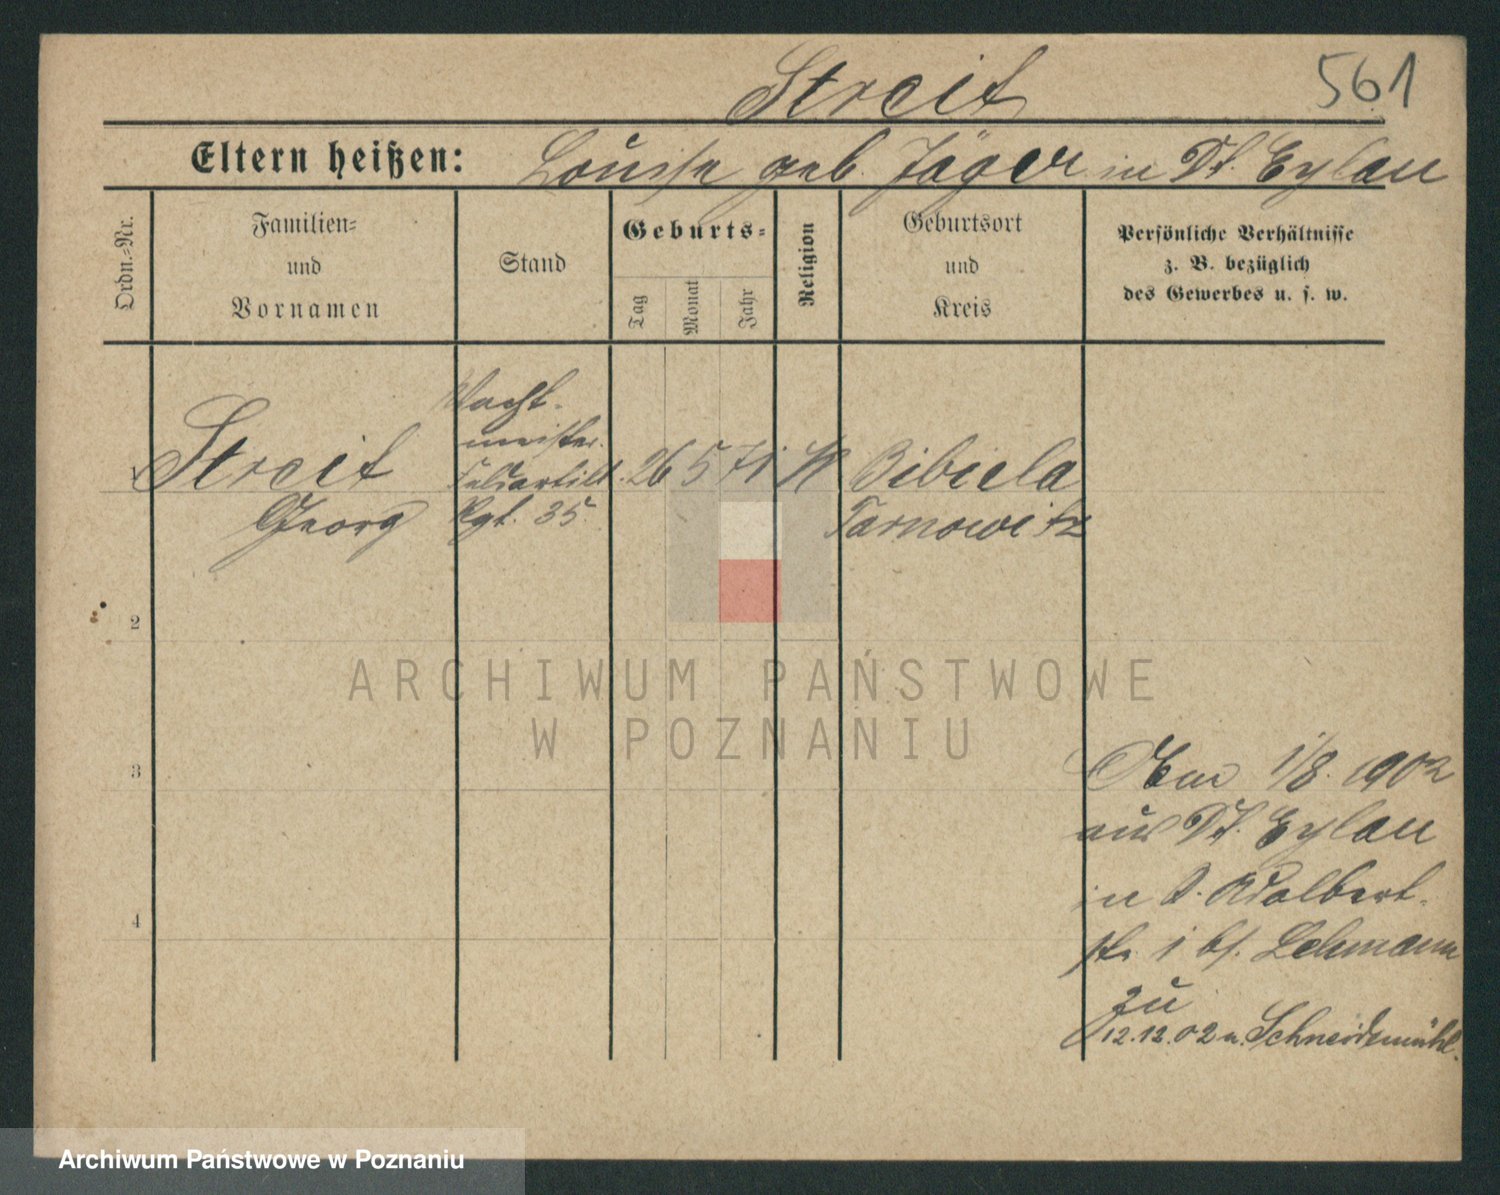 Streit
561
Eltern heißen: Louise geb. Jäger in Dt. Eylau
Ordn.-Nr.
Familien-
und
Vornamen
Stand
Geburts-
Tag
Monat
Jahr
Religion
Geburtsort
und
Kreis
Persönliche Verhältnisse
z. B. bezüglich
des Gewerbes u. s. w.
Streit
Georg
Wacht-
meister
Feldartill.
Rgt. 35.
26 5 71
Bibiela
Tarnowitz
2
3
4
1/8. 1902
aus Dt. Eylau
in Adalbert-
str. 1 bf. Lehmann
zu
12.12.02 n. Schneidemühl.
ARCHIWUM PAŃSTWOWE
W POZNANIU
Archiwum Państwowe w Poznaniu